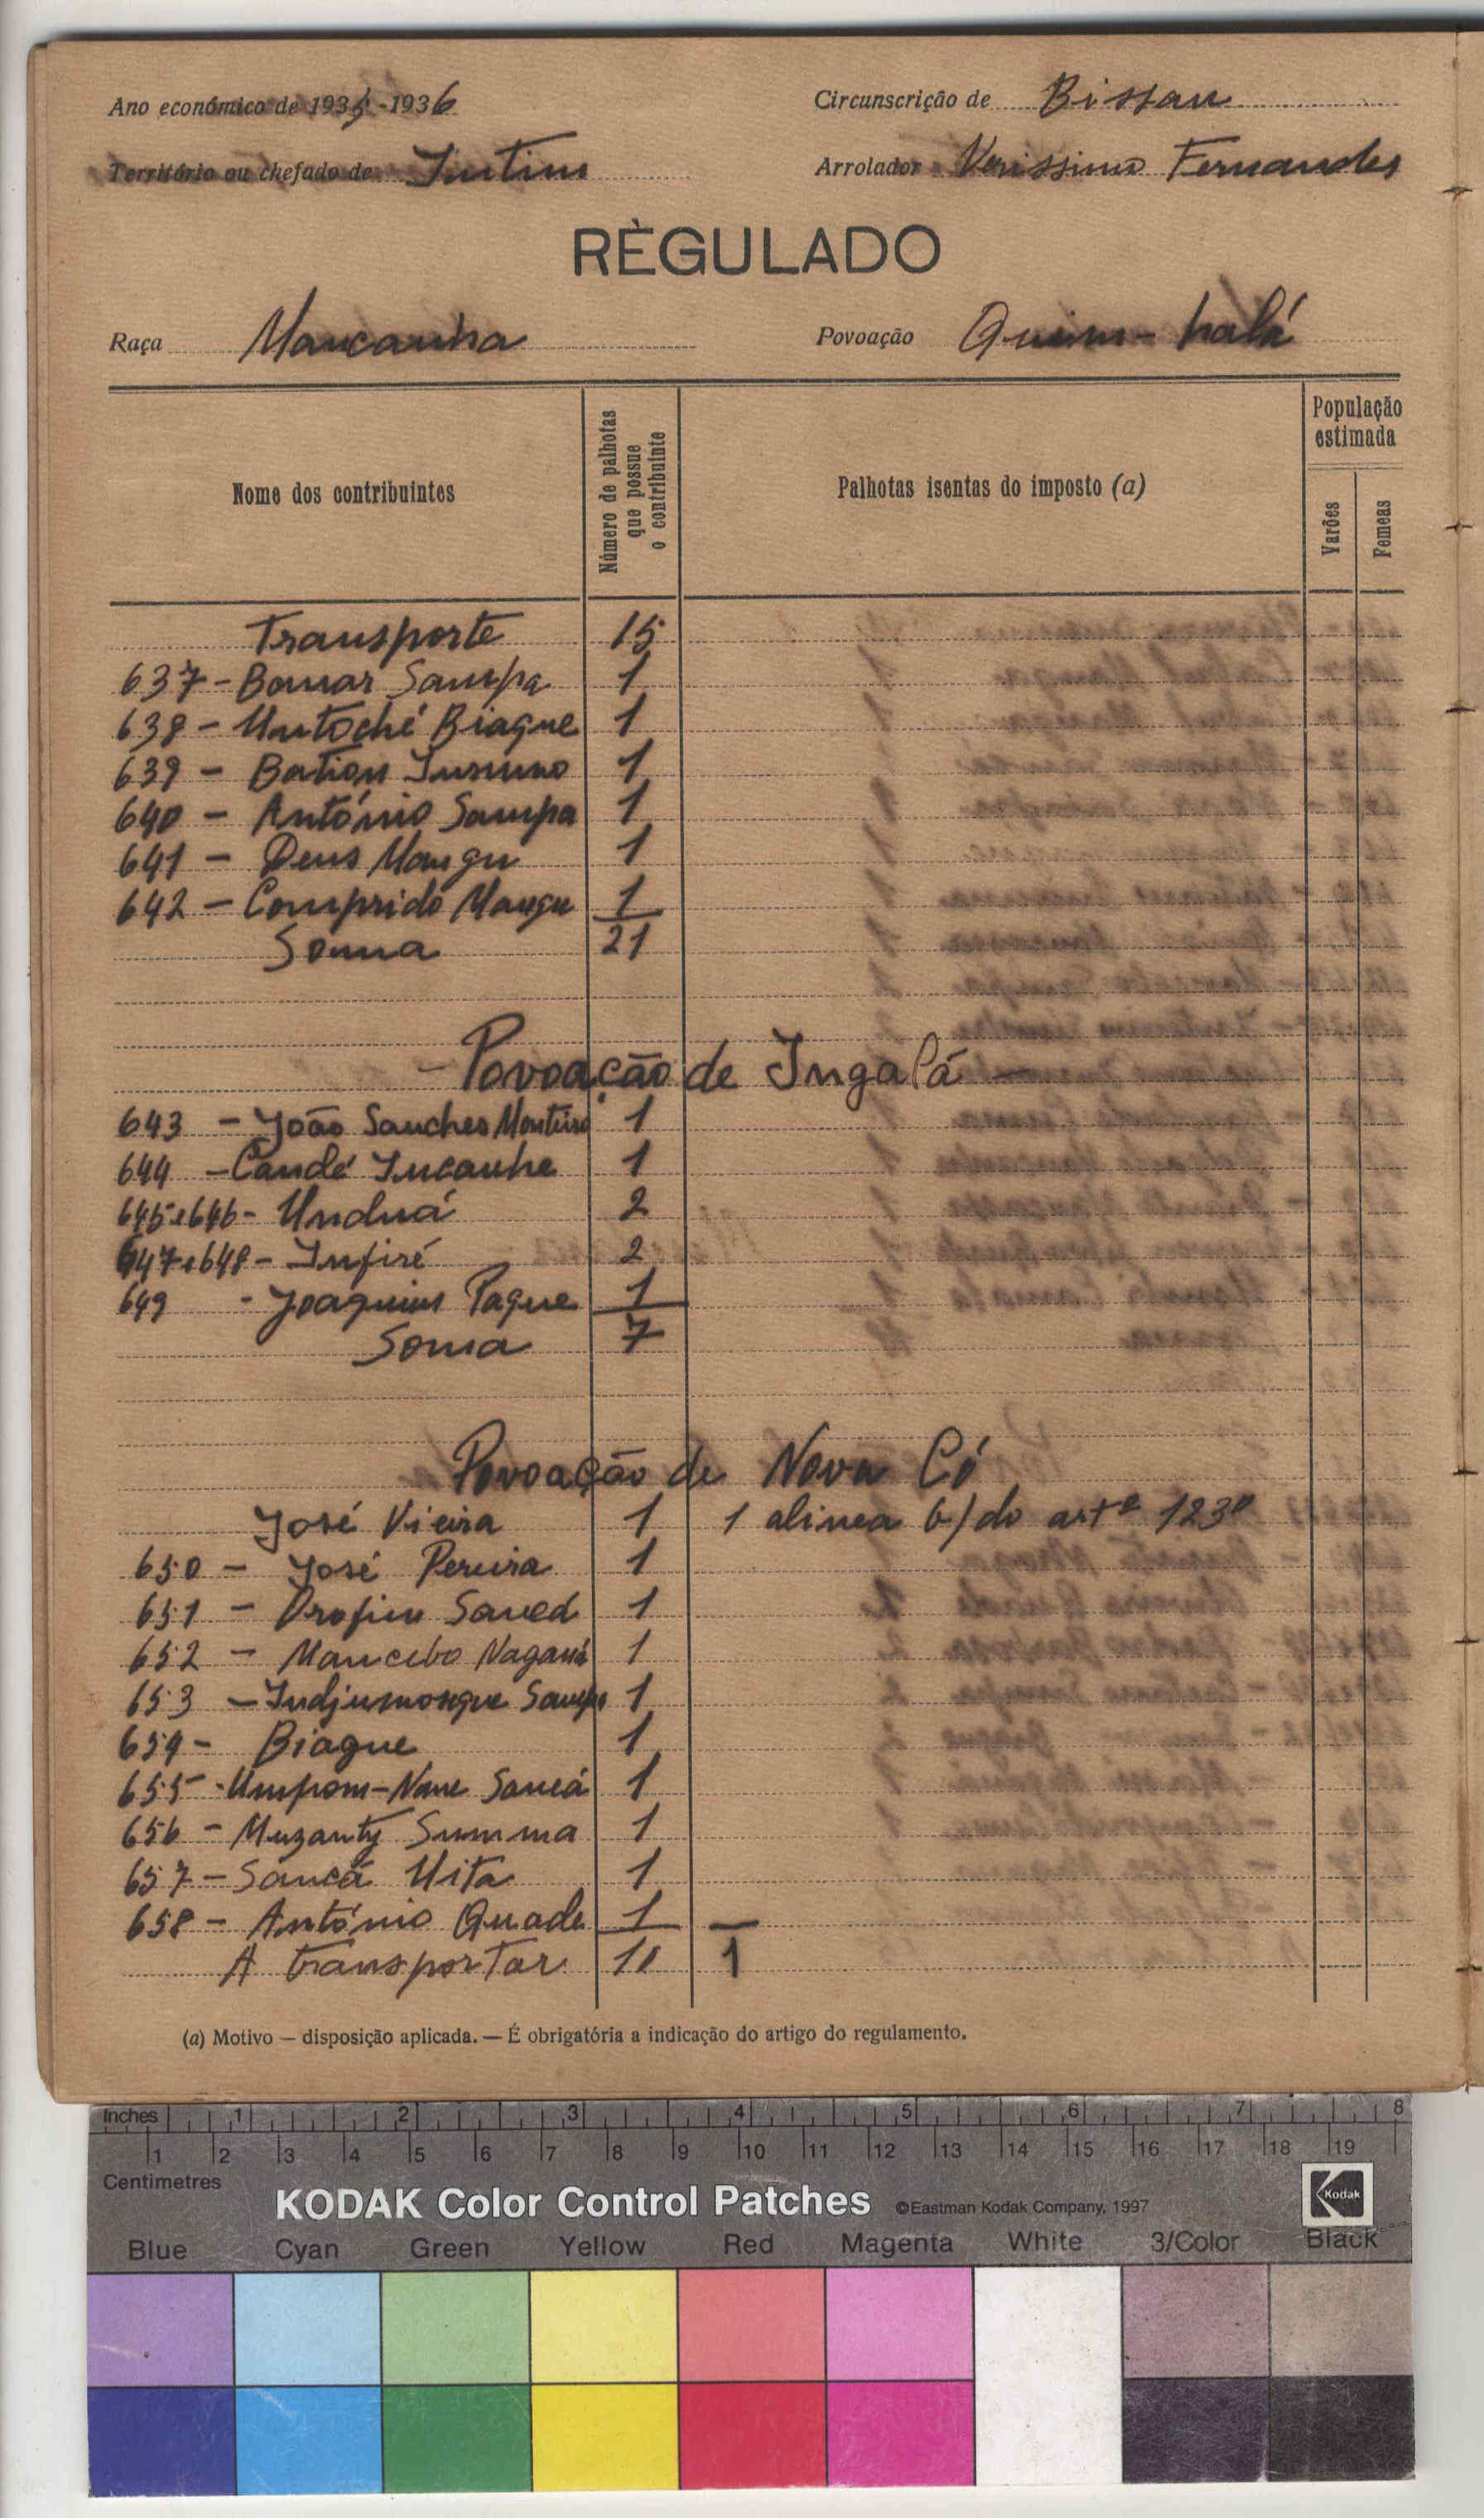 Ano económico de 1935-1936
Circunscrição de Bissau
Território ou chefado de Intim
Arrolador Verissimo Fernandes
RÈGULADO
Raça Mancanha
Povoação Quim-halá
Nome dos contribuintes
Número de palhotas que possue o contribuinte
Palhotas isentas do imposto (a)
População estimada
Varões
Femeas
Transporte 15
637 - Bomar Sampa 1
638 - Untoché Biague 1
639 - Bation 1
640 - António Sampa 1
641 - Deus Mangu 1
642 - Comprido Mangu 1
Soma 21
- Povoação de Ingalá -
643 - João Sanches Monteiro 1
644 - Candé Incanhe 1
645 e 646 - Unduá 2
647 e 648 - Infiré 2
649 - Joaquim Paque 1
Soma 7
Povoação de Nova Có
José Vieira 1 1 alinea b/ do artº 123º
650 - José Pereira 1
651 - Orofim 1
652 - Mancebo 1
653 - Sampa 1
654 - Biague 1
655 - Umpom-Nane Sancá 1
656 - Muzanty Summa 1
657 - Sancá Uita 1
658 - António Quade 1
A transportar 10 1
(a) Motivo — disposição aplicada. — É obrigatória a indicação do artigo do regulamento.
Inches 1 2 3 4 5 6 7 8
1 2 3 4 5 6 7 8 9 10 11 12 13 14 15 16 17 18 19
Centimetres
KODAK Color Control Patches ©Eastman Kodak Company, 1997 Kodak
Blue Cyan Green Yellow Red Magenta White 3/Color Black